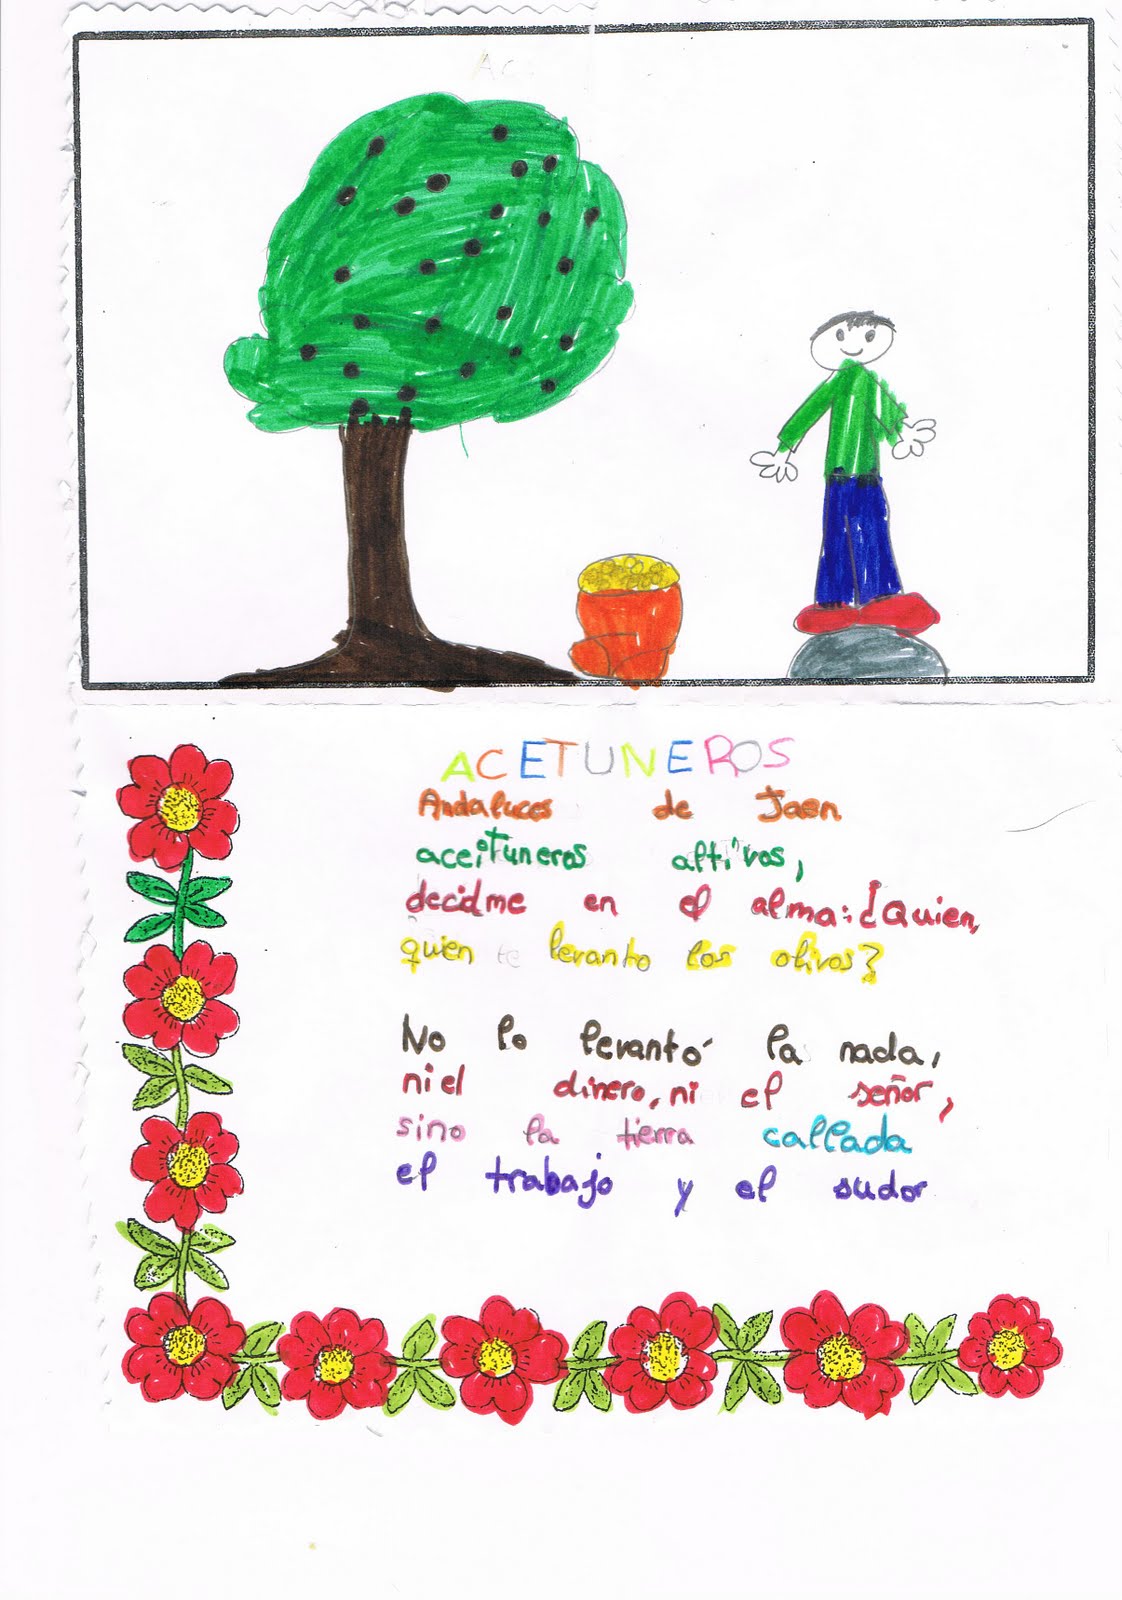 Ac
ACETUNEROS
Andaluces de Jaen
aceituneros altivos,
decidme en el alma: ¿Quien,
quien te levanto los olivos?
No lo levantó la nada,
ni el dinero, ni el señor,
sino la tierra callada
el trabajo y el sudor